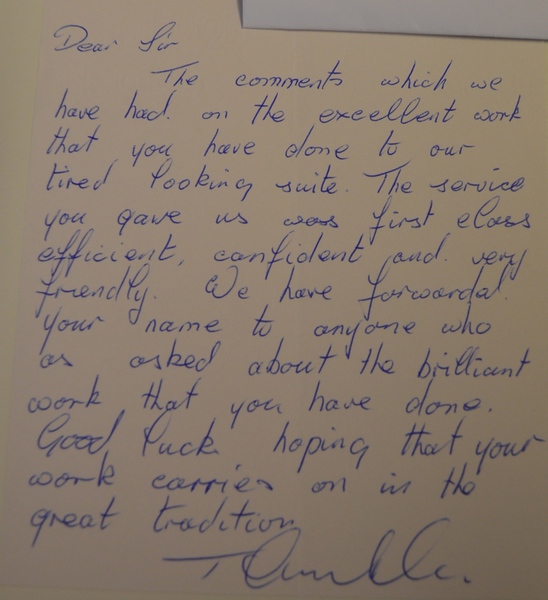 Dear Sir
The comments which we
have had. on the excellent work
that you have done to our
tired looking suite. The service
you gave us was first class
efficient, confident and. very
friendly. We have forwarded.
your name to anyone who
as asked about the brilliant
work that you have done.
Good luck hoping that your
work carries on in the
great tradition